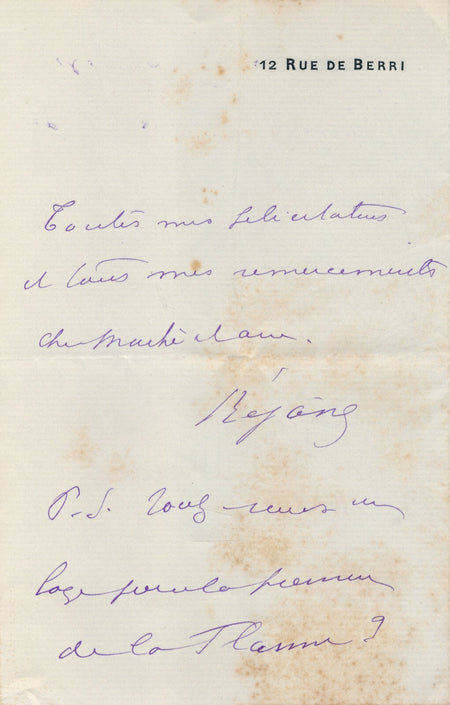 12 RUE DE BERRI
Toutes mes félicitations
et tous mes remerciements
cher Maître et ami.
Réjane
P.-S. une
loge pour la première
de la Flamme ?